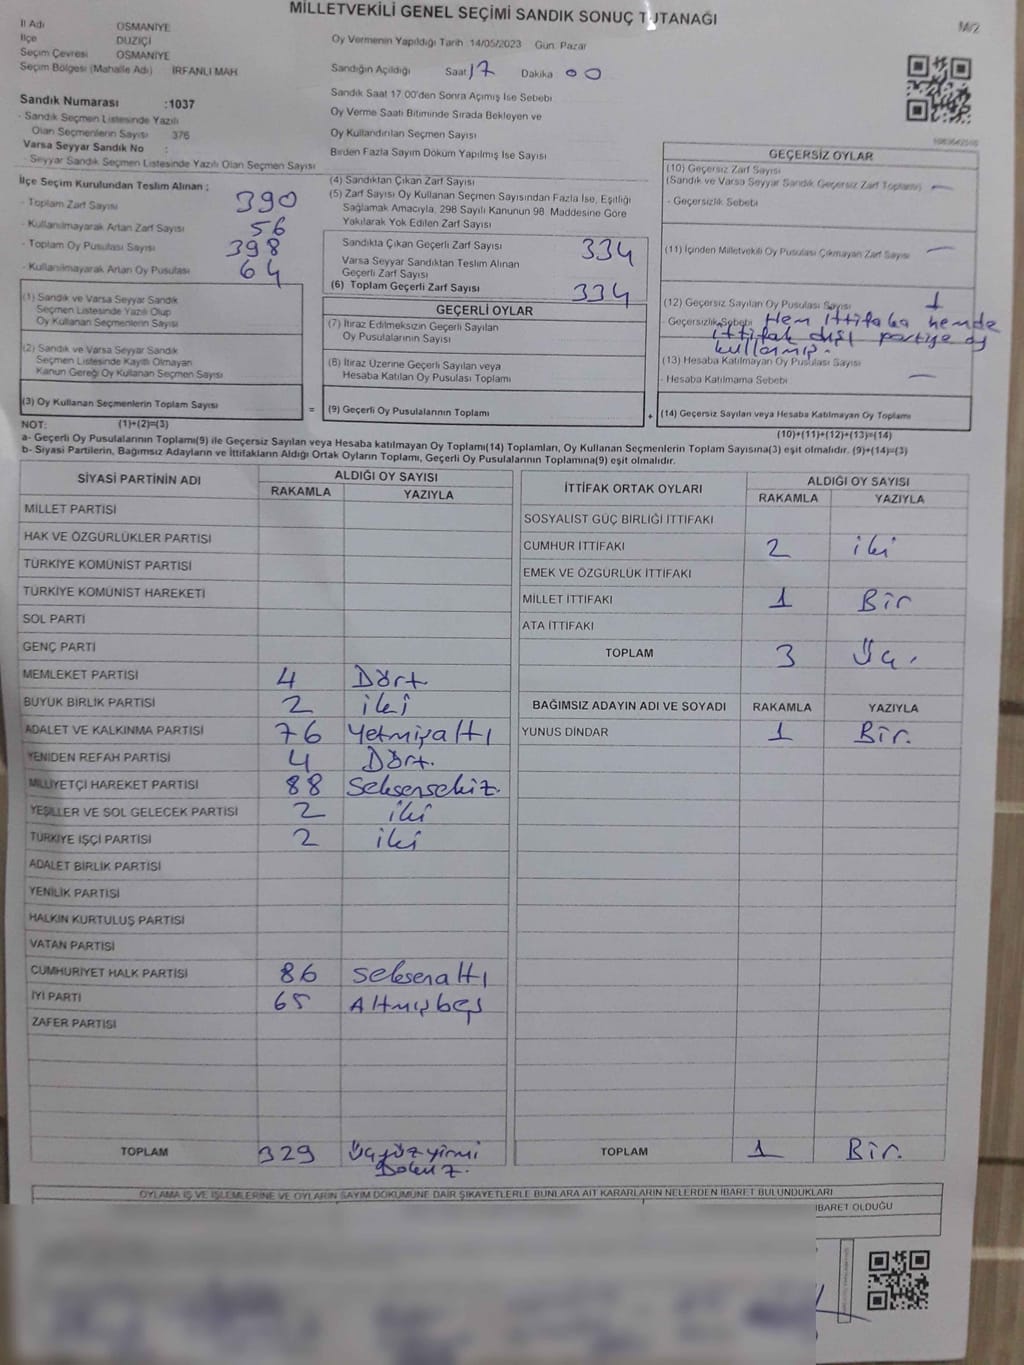 MİLLETVEKİLİ GENEL SEÇİMİ SANDIK SONUÇ TUTANAĞI
M/2
İl Adı OSMANİYE
İlçe DÜZİÇİ
Seçim Çevresi OSMANİYE
Seçim Bölgesi (Mahalle Adı) İRFANLI MAH
Sandık Numarası :1037
- Sandık Seçmen Listesinde Yazılı
Olan Seçmenlerin Sayısı 376
Varsa Seyyar Sandık No :
Seyyar Sandık Seçmen Listesinde Yazılı Olan Seçmen Sayısı
Oy Vermenin Yapıldığı Tarih :14/05/2023 Gün: Pazar
Sandığın Açıldığı Saat 17 Dakika 00
Sandık Saat 17.00'den Sonra Açılmış İse Sebebi
Oy Verme Saati Bitiminde Sırada Bekleyen ve
Oy Kullandırılan Seçmen Sayısı
Birden Fazla Sayım Döküm Yapılmış İse Sayısı
İlçe Seçim Kurulundan Teslim Alınan ;
- Toplam Zarf Sayısı 390
- Kullanılmayarak Artan Zarf Sayısı 56
- Toplam Oy Pusulası Sayısı 398
- Kullanılmayarak Artan Oy Pusulası 64
(1) Sandık ve Varsa Seyyar Sandık
Seçmen Listesinde Yazılı Olup
Oy Kullanan Seçmenlerin Sayısı
(2) Sandık ve Varsa Seyyar Sandık
Seçmen Listesinde Kayıtlı Olmayan
Kanun Gereği Oy Kullanan Seçmen Sayısı
(3) Oy Kullanan Seçmenlerin Toplam Sayısı
(4) Sandıktan Çıkan Zarf Sayısı
(5) Zarf Sayısı Oy Kullanan Seçmen Sayısından Fazla İse, Eşitliği
Sağlamak Amacıyla, 298 Sayılı Kanunun 98. Maddesine Göre
Yakılarak Yok Edilen Zarf Sayısı
Sandıkta Çıkan Geçerli Zarf Sayısı 334
Varsa Seyyar Sandıktan Teslim Alınan
Geçerli Zarf Sayısı
(6) Toplam Geçerli Zarf Sayısı 334
GEÇERLİ OYLAR
(7) İtiraz Edilmeksizin Geçerli Sayılan
Oy Pusulalarının Sayısı
(8) İtiraz Üzerine Geçerli Sayılan veya
Hesaba Katılan Oy Pusulası Toplamı
= (9) Geçerli Oy Pusulalarının Toplamı
GEÇERSİZ OYLAR
(10) Geçersiz Zarf Sayısı
(Sandık ve Varsa Seyyar Sandık Geçersiz Zarf Toplamı) —
- Geçersizlik Sebebi
(11) İçinden Milletvekili Oy Pusulası Çıkmayan Zarf Sayısı —
(12) Geçersiz Sayılan Oy Pusulası Sayısı 1
- Geçersizlik Sebebi Hem İttifaka hemde
ittifak dışı partiye oy
kullanmış.
(13) Hesaba Katılmayan Oy Pusulası Sayısı
- Hesaba Katılmama Sebebi —
+ (14) Geçersiz Sayılan veya Hesaba Katılmayan Oy Toplamı
NOT: (1)+(2)=(3)
(10)+(11)+(12)+(13)=(14)
a- Geçerli Oy Pusulalarının Toplamı(9) ile Geçersiz Sayılan veya Hesaba katılmayan Oy Toplamı(14) Toplamları, Oy Kullanan Seçmenlerin Toplam Sayısına(3) eşit olmalıdır. (9)+(14)=(3)
b- Siyasi Partilerin, Bağımsız Adayların ve İttifakların Aldığı Ortak Oyların Toplamı, Geçerli Oy Pusulalarının Toplamına(9) eşit olmalıdır.
SİYASİ PARTİNİN ADI ALDIĞI OY SAYISI
RAKAMLA YAZIYLA
MİLLET PARTİSİ
HAK VE ÖZGÜRLÜKLER PARTİSİ
TÜRKİYE KOMÜNİST PARTİSİ
TÜRKİYE KOMÜNİST HAREKETİ
SOL PARTİ
GENÇ PARTİ
MEMLEKET PARTİSİ 4 Dört
BÜYÜK BİRLİK PARTİSİ 2 iki
ADALET VE KALKINMA PARTİSİ 76 Yetmişaltı
YENİDEN REFAH PARTİSİ 4 Dört.
MİLLİYETÇİ HAREKET PARTİSİ 88 Seksensekiz.
YEŞİLLER VE SOL GELECEK PARTİSİ 2 iki
TÜRKİYE İŞÇİ PARTİSİ 2 iki
ADALET BİRLİK PARTİSİ
YENİLİK PARTİSİ
HALKIN KURTULUŞ PARTİSİ
VATAN PARTİSİ
CUMHURİYET HALK PARTİSİ 86 Seksenaltı
İYİ PARTİ 65 Altmışbeş
ZAFER PARTİSİ
TOPLAM 329 Üçyüzyirmi
Dokuz.
İTTİFAK ORTAK OYLARI ALDIĞI OY SAYISI
RAKAMLA YAZIYLA
SOSYALİST GÜÇ BİRLİĞİ İTTİFAKI
CUMHUR İTTİFAKI 2 iki
EMEK VE ÖZGÜRLÜK İTTİFAKI
MİLLET İTTİFAKI 1 Bir
ATA İTTİFAKI
TOPLAM 3 Üç.
BAĞIMSIZ ADAYIN ADI VE SOYADI RAKAMLA YAZIYLA
YUNUS DİNDAR 1 Bir.
TOPLAM 1 Bir.
OYLAMA İŞ VE İŞLEMLERİNE VE OYLARIN SAYIM DÖKÜMÜNE DAİR ŞİKAYETLERLE BUNLARA AİT KARARLARIN NELERDEN İBARET BULUNDUKLARI
İBARET OLDUĞU